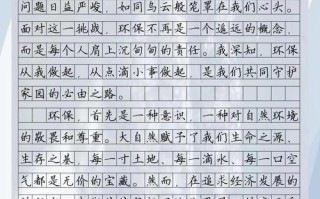 问题日益严峻，如同乌云般笼罩在我们心头。
面对这一挑战，环保不再是一个遥远的概念，
而是每个人肩上沉甸甸的责任。我深知，环保
从我做起，从点滴小事做起，是我们共同守护
家园的必由之路。
环保，首先是一种意识，一种对自然环境
的敬畏和尊重。大自然赋予了我们生命之源，
生存之基，每一寸土地、每一滴水、每一口空
气都是无价的宝藏。然而，在追求经济发展的